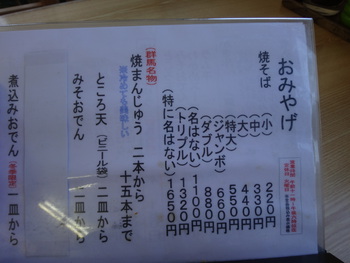 おみやげ
焼そば
(小) 220円
(中) 330円
(大) 440円
(特大) 550円
(ジャンボ) 660円
(ダブル) 880円
(名はない) 1100円
(トリプル) 1320円
(特に名はない) 1650円
(群馬名物)
焼まんじゅう 二本から十五本まで
ところ天 (ビニール袋) 二皿から
みそおでん 二皿から
煮込みおでん 二皿から